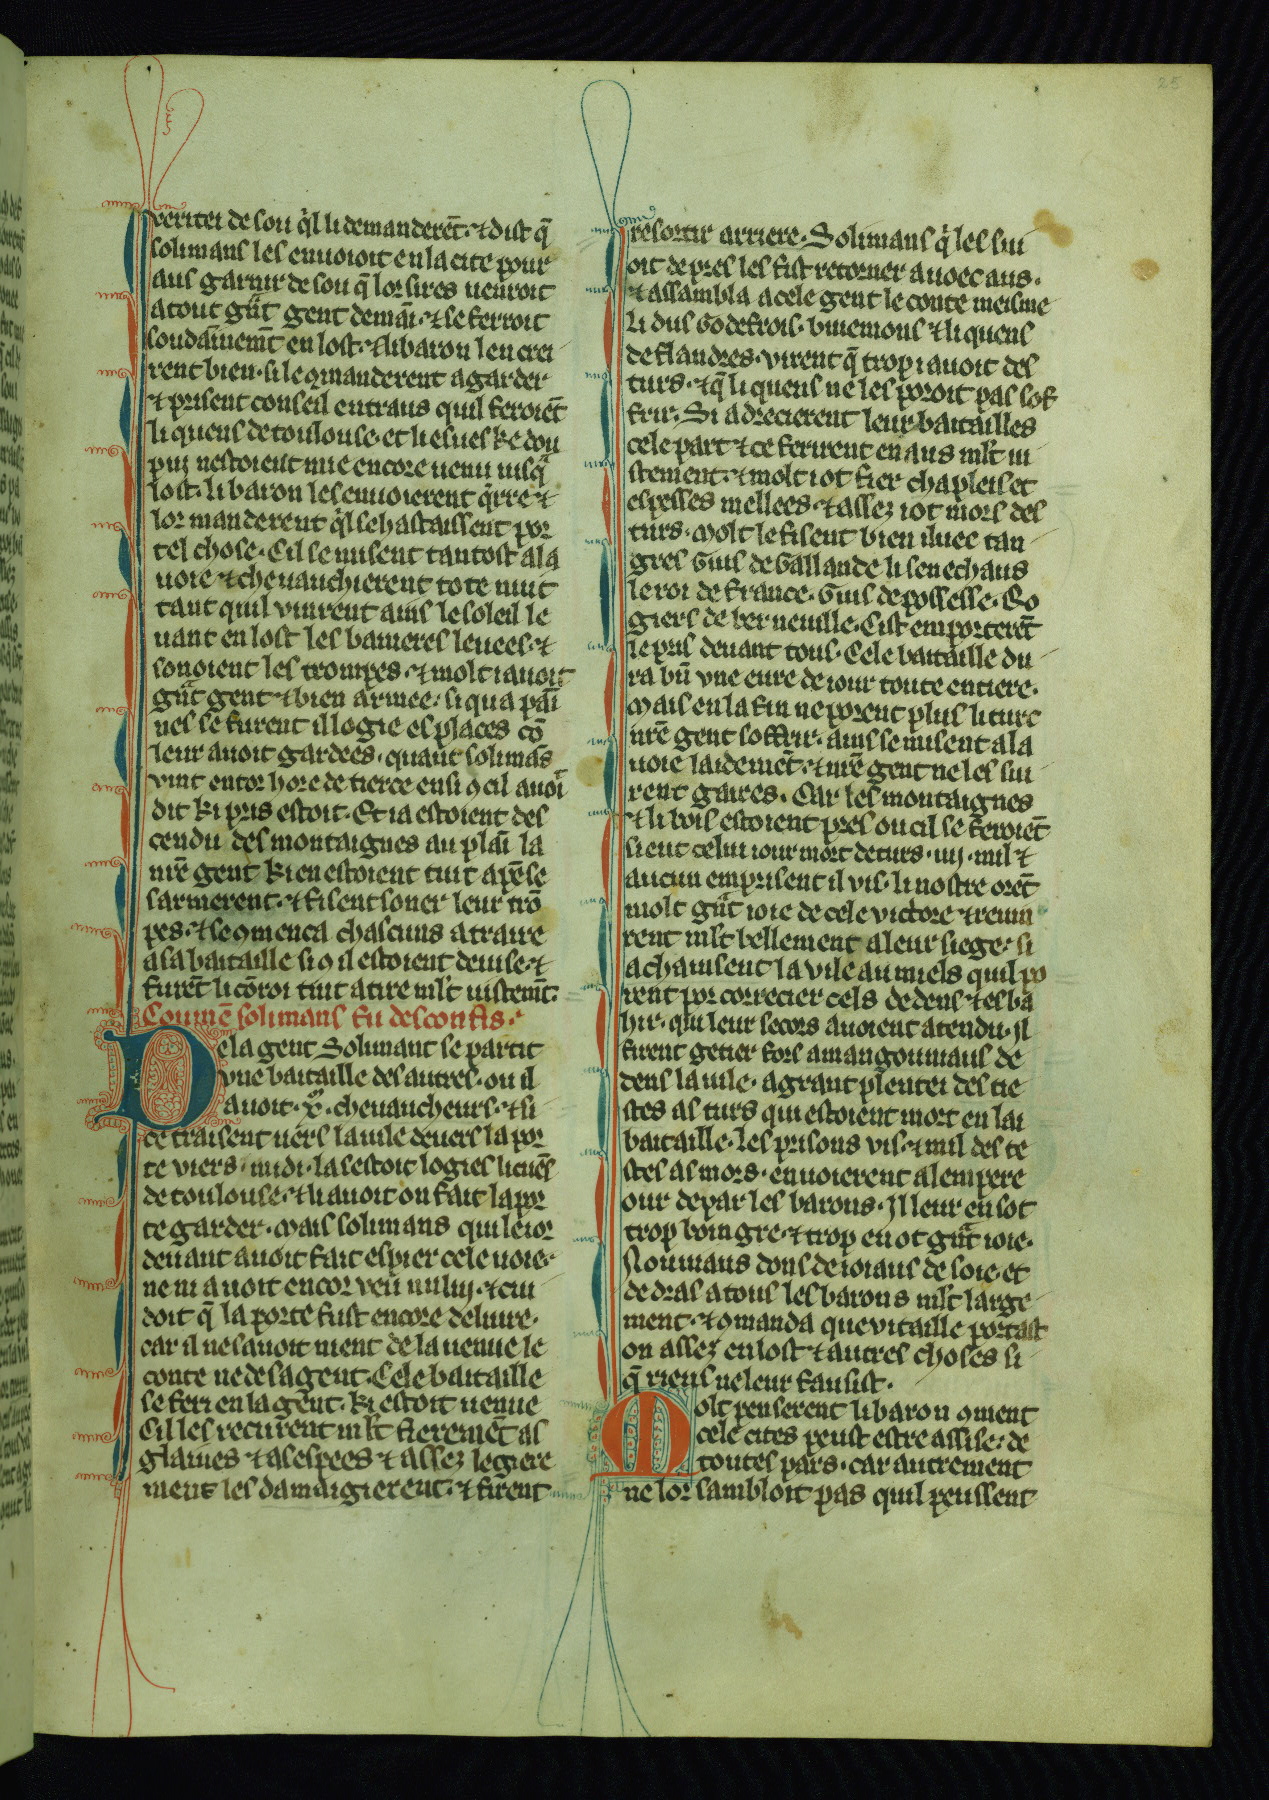 25
veritei de sou q̓l li demanderēt. ⁊ dist q̄
solimans les envoioit en la cite pour
aus garnir de sou q̄ lor sires venroit
atout gūt gent demāi. ⁊ se ferroit
soudainemēt en lost. ⁊ li baron leu crei
rent bien. si le ꝯmanderent a garder
⁊ prisent conseil entraus quil feroiēt
li quens de toulouse. et li esveskе dou
pui nestoient mie encore venu iusq̄
lost. li baron les envoierent q̄rre ⁊
lor manderent q̓l se hastaissent por
tel chose. Cil se misent tantost a la
voie ⁊ chevauchierent tote nuit
tant quil vinrent ains le soleil le
vant en lost les banieres levees. ⁊
sonoient les trompes. ⁊ molt i avoit
gūt gent ⁊ bien armee. si qua pai
nes se furent il logie es places cō
leur avoit gardees. quant solimās
vint entor hore de tierce ensi ꝯ cil avoit
dit ki pris estoit. Et ia estoient des
cendu des montaignes au plāi la
nrē gent ki en estoient tuit apēse
sarmerent. ⁊ fisent soner leur trō
pes. ⁊ se ꝯmenca chascuns a traire
a sa bataille si ꝯ il estoient devise. ⁊
furēt li cōroi tuit atire ml't vistemt.
Coumēt solimans fu desconfis.
De la gent Solimant se partit
une bataille des autres. ou il
avoit .x. chevaucheurs. ⁊ si
se traisent vers la vile devers la por
te viers midi. la sestoit logies li cuēs
de toulouse. ⁊ li avoit on fait la por
te garder. Mais solimans qui le ior
devant avoit fait espier cele voie.
ne ni avoit encor veu nului. ⁊ cui
doit q̄ la porte fust encore delivre.
car il ne savoit nient de la venue le
conte ne de sa gent. Cele bataille
se feri en la gent. ki estoit venue
Cil les recurent ml't fieremēt as
glaives ⁊ as espees ⁊ assez legiere
ment les damaigierent. ⁊ firent
resortir arriere. Solimans q̓ les sui
oit de pres les fist retorner avoec aus.
⁊ assambla a cele gent le conte meisme
Li dus Godefrois. buiemons ⁊ li quens
de flandres. virent q̄ trop i avoit des
turs. ⁊ q̄ li quens ne les poroit pas sof
frir. Si adrecierent leur batailles
cele part ⁊ se ferirent en aus ml't ui
stement. ⁊ molt i ot fier chapleis et
espesses mellees. ⁊ assez i ot mors des
turs. Molt le fisent bien iluec tan
gres Guis de Gallande li senechaus
le roi de france. Guis de possesse. Ro
giers de berneuille. Cist emporterēt
le pris devant tous. Cele bataille du
ra bn̄ une eure de iour toute entiere.
Mais en la fin ne porent plus li turc
nrē gent soffrir. ains se misent a la
voie laidemēt. ⁊ nrē gent ne les sui
rent gaires. Car les montaignes
⁊ li bois estoient pres ou cil se feroiēt
si eut celui iour mort de turs .iiij. mil ⁊
aucun en prisent il vis. li nostre orēt
molt gūt ioie de cele victore ⁊ revin
rent ml't bellement a leur siege. si
achainsent la vile au miels quil po
rent por correcier cels dedens ⁊ esba
hir. qui leur secors avoient atendu. Il
firent getier fors a mangoniaus de
dens la vile. a grant plentei des tie
stes as turs qui estoient mort en lai
bataille. les prisons vis. ⁊ mil des te
stes as mors. envoierent a lempere
our de par les barons. Il leur en sot
trop boin gre. ⁊ trop en ot gūt ioie.
Nonmans dons de ioiaus de soie. et
de dras a tous les barons ml't large
ment. ⁊ ꝯmanda que vitaille portast
on assez en lost ⁊ autres choses si
q̄ riens ne leur fausist.
Molt penserent li baron ꝯment
cele cites peust estre assise. de
toutes pars. car autrement
ne lor sambloit pas quil peussent